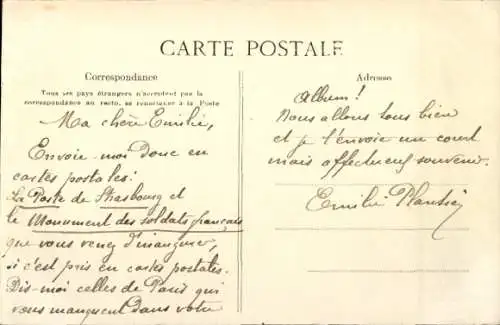 CARTE POSTALE
Correspondance
Tous les pays étrangers n'acceptent pas la
correspondance au recto, se renseigner à la Poste
Ma chère Emilie,
Envoie-moi Donc en
cartes postales:
La Poste de Strasbourg et
le Monument des soldats français
que vous venez d'inaugurer,
si c'est pris en cartes postales.
Dis-moi celles de Paris qui
vous manquent dans votre
Adresse
Album!
Nous allons tous bien
et je t'envoie un court
mais affectueux souvenir.
Emilie